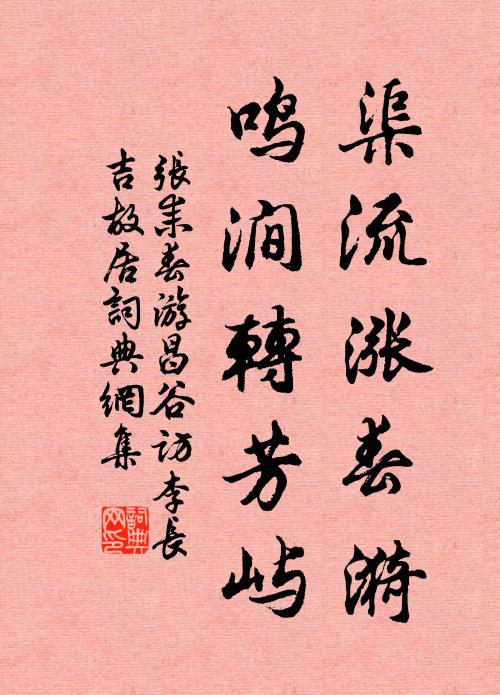 渠流涨春漪
鸣涧轉芳屿
張耒春游昌谷访李長
吉故居詞典網集
詞典
网印